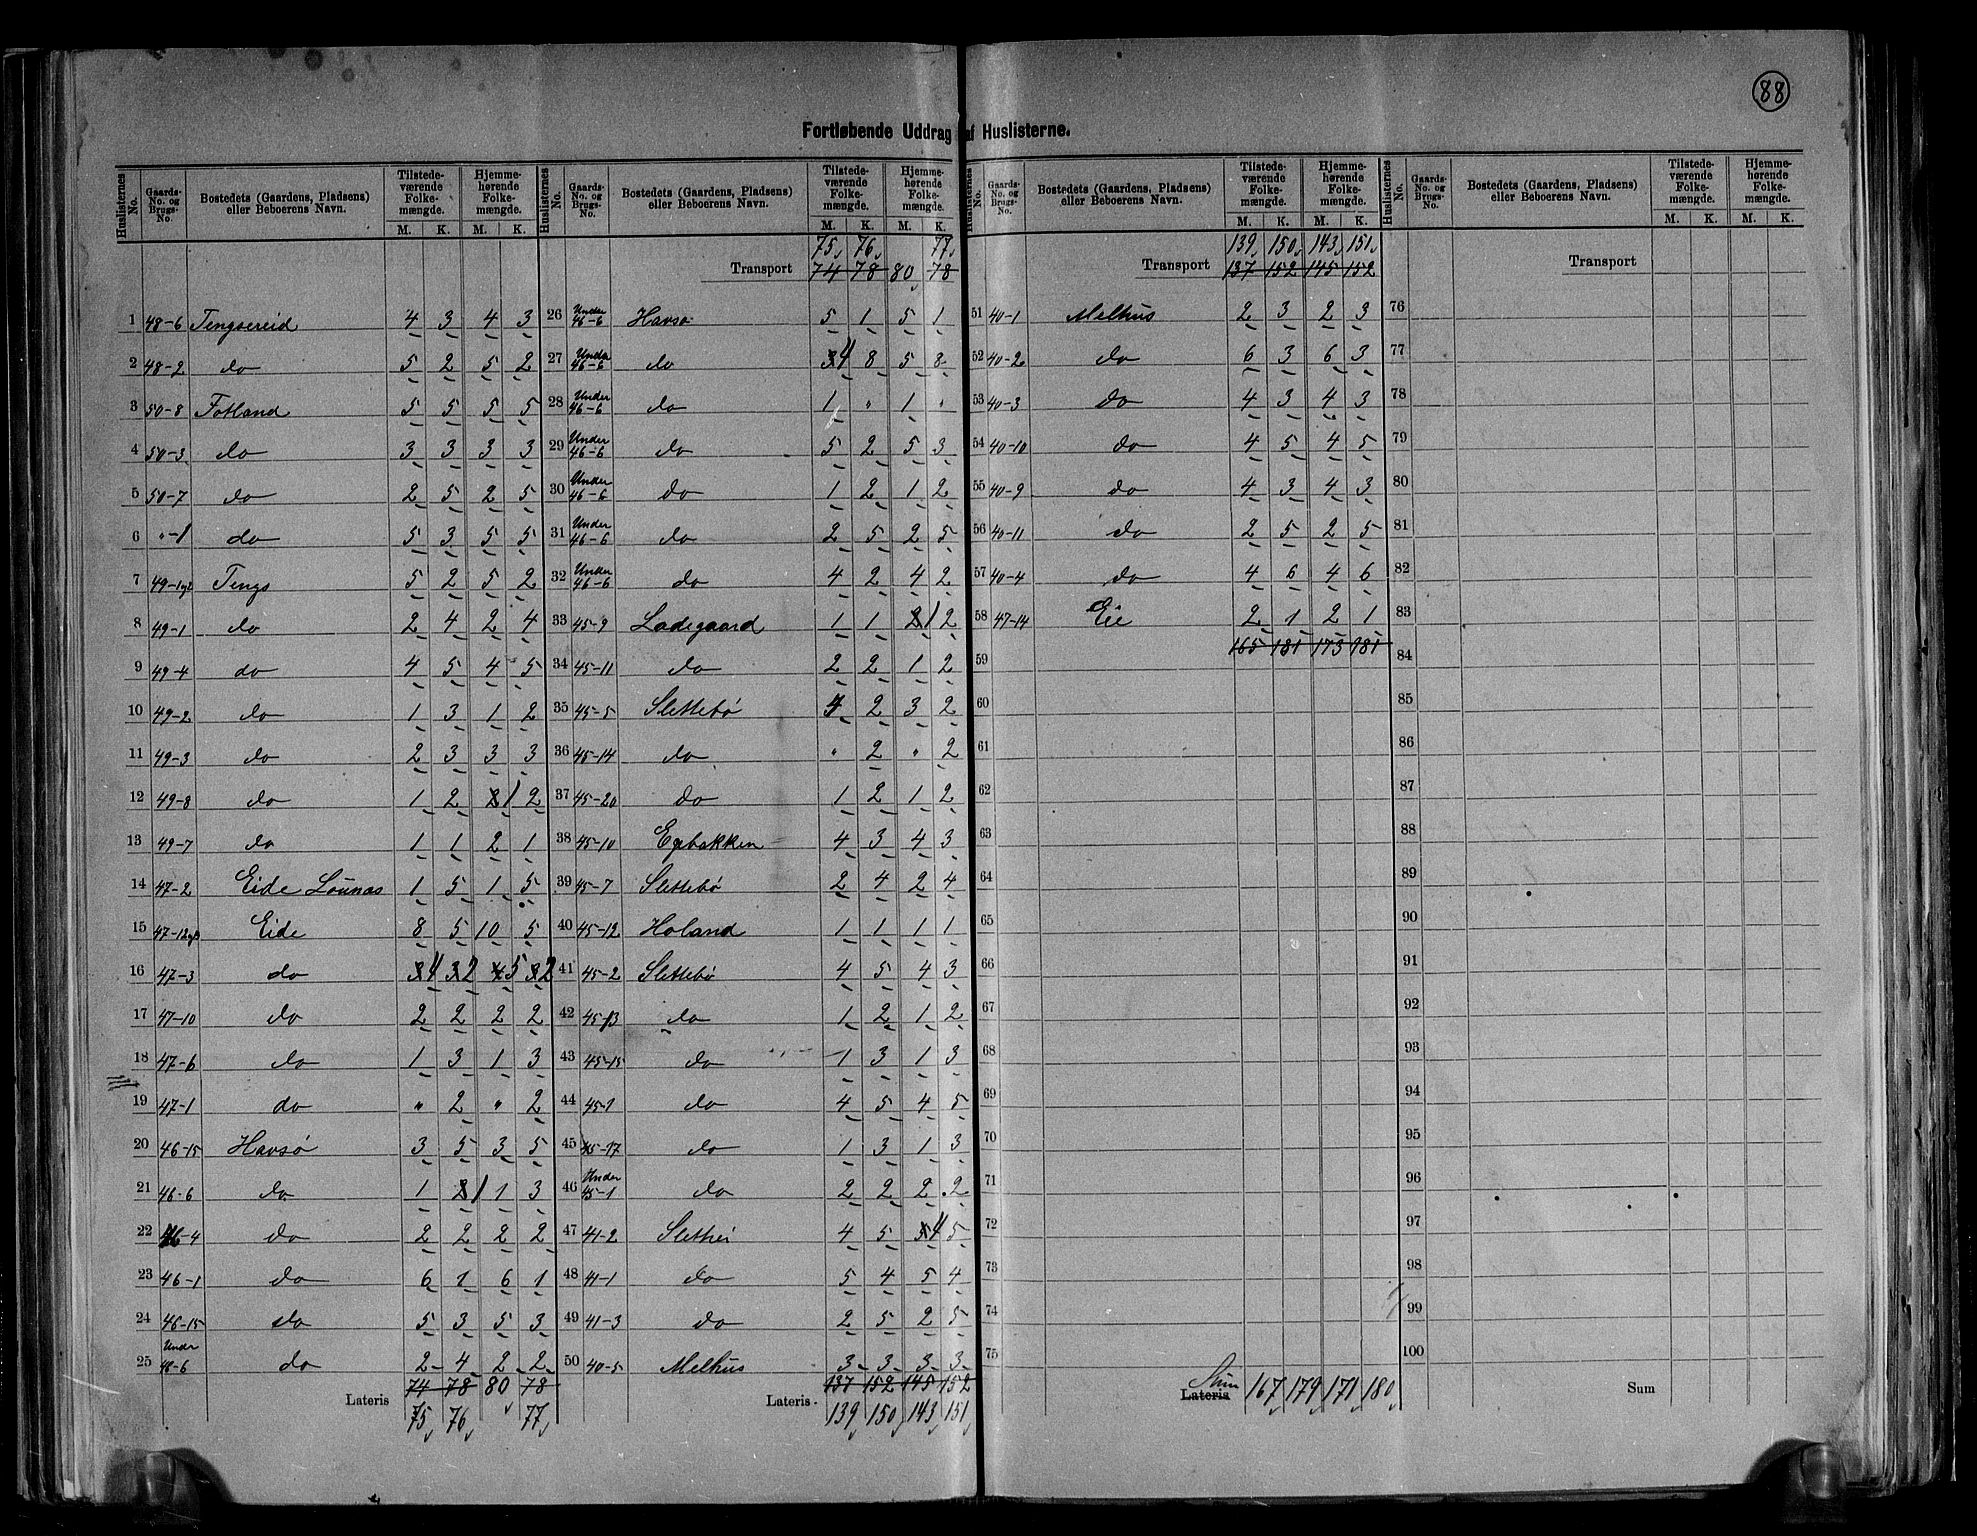 88
Fortløbende Uddrag af Huslisternes.
Huslisternes No. Gaards-No. og Brugs-No. Bostedets (Gaardens, Pladsens) eller Beboerens Navn. Tilstedeværende Folkemængde. M. K. Hjemmehørende Folkemængde. M. K.
1 48-6 Tengsereid 4 3 4 3
2 48-2 do 5 2 5 2
3 50-8 Fotland 5 5 5 5
4 50-3 do 3 3 3 3
5 50-7 do 2 5 2 5
6 "-1 do 5 3 5 5
7 49-1 Tengs 5 2 5 2
8 49-1 do 2 4 2 4
9 49-4 do 4 5 4 5
10 49-2 do 1 3 1 2
11 49-3 do 2 3 3 3
12 49-8 do 1 2 1 2
13 49-7 do 1 1 2 1
14 47-2 Eide Lounas 1 5 1 5
15 47-12 Eide 8 5 10 5
16 47-3 do 3 4 3 2 4 5 3 2
17 47-10 do 2 2 2 2
18 47-6 do 1 3 1 3
19 47-1 do " 2 " 2
20 46-15 Havsø 3 5 3 5
21 46-6 do 1 1 1 3
22 46-4 do 2 2 2 2
23 46-1 do 6 1 6 1
24 46-15 do 5 3 5 3
25 Under 48-6 do 2 4 2 2
74 78 80 78
Lateris 75 76 77
Huslisternes No. Gaards-No. og Brugs-No. Bostedets (Gaardens, Pladsens) eller Beboerens Navn. Tilstedeværende Folkemængde. M. K. Hjemmehørende Folkemængde. M. K.
75 76 77
Transport 74 78 80 78
26 Under 46-6 Havsø 5 1 5 1
27 Under 46-6 do 3 4 8 5 8
28 Under 46-6 do 1 " 1 "
29 Under 46-6 do 5 2 5 3
30 Under 46-6 do 1 2 1 2
31 Under 46-6 do 2 5 2 5
32 Under 46-6 do 4 2 4 2
33 45-9 Ladegaard 1 1 1 2
34 45-11 do 2 2 1 2
35 45-5 Slettebø 4 2 3 2
36 45-14 do " 2 " 2
37 45-20 do 1 2 1 2
38 45-10 Egebakken 4 3 4 3
39 45-7 Slettebø 2 4 2 4
40 45-12 Holand 1 1 1 1
41 45-2 Slettebø 4 5 4 3
42 45-13 do 1 2 1 2
43 45-15 do 1 3 1 3
44 45-1 do 4 5 4 5
45 45-17 do 1 3 1 3
46 Under 45-1 do 2 2 2 2
47 41-2 4 5 5 4 5
48 41-1 do 5 4 5 4
49 41-3 do 2 5 2 5
50 40-5 Melhus 3 3 3 3
137 152 145 152
Lateris 139 150 143 151
Huslisternes No. Gaards-No. og Brugs-No. Bostedets (Gaardens, Pladsens) eller Beboerens Navn. Tilstedeværende Folkemængde. M. K. Hjemmehørende Folkemængde. M. K.
139 150 143 151
Transport 137 152 145 152
51 40-1 Melhus 2 3 2 3
52 40-2 do 6 3 6 3
53 40-3 do 4 3 4 3
54 40-10 do 4 5 4 5
55 40-9 do 4 3 4 3
56 40-11 do 2 5 2 5
57 40-4 do 4 6 4 6
58 47-14 Eie 2 1 2 1
165 181 173 181
59
60
61
62
63
64
65
66
67
68
69
70
71
72
73
74
75
Sum Lateris 167 179 171 180
Huslisternes No. Gaards-No. og Brugs-No. Bostedets (Gaardens, Pladsens) eller Beboerens Navn. Tilstedeværende Folkemængde. M. K. Hjemmehørende Folkemængde. M. K.
Transport
76
77
78
79
80
81
82
83
84
85
86
87
88
89
90
91
92
93
94
95
96
97
98
99
100
Sum